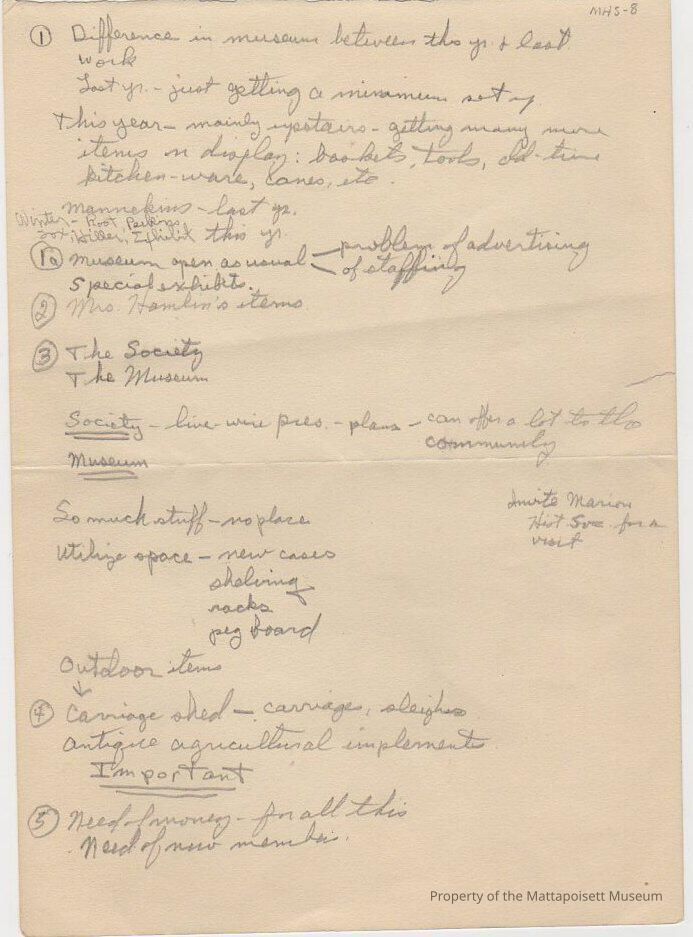 MHS-8
① Difference in museum between this yr. & last
work
Last yr. - just getting a minimum set up
This year - mainly upstairs - getting many more
items on display: baskets, tools, old-time
kitchen-ware, canes, etc.
Mannekins - last yr.
Winter - Root, Perkins,
Hiller, Exhibit this yr.
1a Museum open as usual - problem of advertising
of staffing
special exhibits.
② Mrs. Hamlin's items
③ The Society
The Museum
Society - live-wire pres. - plans - can offer a lot to the
community
Museum
Invite Marion
Hist Soc. for a
visit
So much stuff - no place
Utilize space - new cases
shelving
racks
peg board
Outdoor items
④ Carriage shed - carriages, sleighs
Antique agricultural implements
Important
⑤ Need of money - for all this
Need of new members.
Property of the Mattapoisett Museum